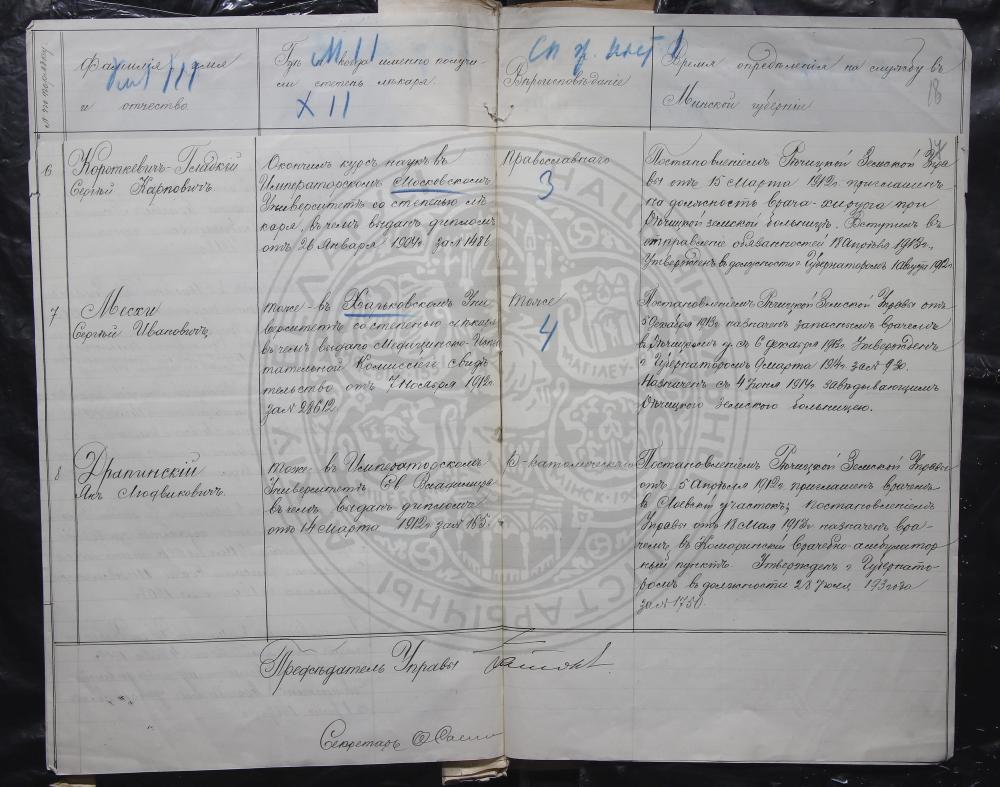 № по порядку.
Фамилія, имя
и отчество.
Гдѣ и когда именно получи-
ли степень лѣкаря.
XII
Вѣроисповѣданіе
Время опредѣленія на службу въ
Минской губерніи
18
6
Короткевичъ-Гладкій
Сергѣй Карповичъ
Окончилъ курсъ наукъ въ
Императорскомъ Московскомъ
Университетѣ со степенью лѣ-
каря, въ чемъ выданъ дипломъ
отъ 26 Января 1904 г. за №
Православнаго
3
Постановленіемъ Рѣчицкой Земской Упра-
вы отъ 15 Марта 1912 г. приглашенъ
на должность врача-хирурга при
Рѣчицкой земской больницѣ. Вступилъ въ
отправленіе обязанностей 18 Апрѣля
Утвержденъ въ должности г. Губернаторомъ
7
Мески
Сергѣй Ивановичъ
тоже въ Харьковскомъ Уни-
верситетѣ со степенью лѣкаря
въ чемъ выдано Медицинско-Испы-
тательной Комиссіей свидѣ-
тельство отъ 7 Ноября 1912 г.
за № 28612.
тоже
4
Постановленіемъ Рѣчицкой Земской Управы отъ
5 Декабря 1913 г. назначенъ запаснымъ врачемъ
въ Рѣчицкомъ у. съ 6 декабря 1913 г. Утвержденъ
г. Губернаторомъ 9 марта 1914 г. за № 930.
Назначенъ съ 4 Іюня 1914 г. завѣдывающимъ
Рѣчицкою земскою больницею.
8
Драпинскій
Янъ Людвиковичъ.
тоже въ Императорскомъ
Университетѣ Св. Владиміра
въ чемъ выданъ дипломъ
отъ 14 Марта 1912 г. за № 165.
Р-католическаго
Постановленіемъ Рѣчицкой Земской Управы
отъ 5 Апрѣля 1912 г. приглашенъ врачемъ
въ Лоевскій участокъ; постановленіемъ
Управы отъ 18 Мая 1912 г. назначенъ вра-
чемъ въ Комаринскій врачебно-амбулатор-
ный пунктъ. Утвержденъ г. Губернато-
ромъ въ должности 28 Іюля
за № 1750.
Предсѣдатель Управы
Секретарь